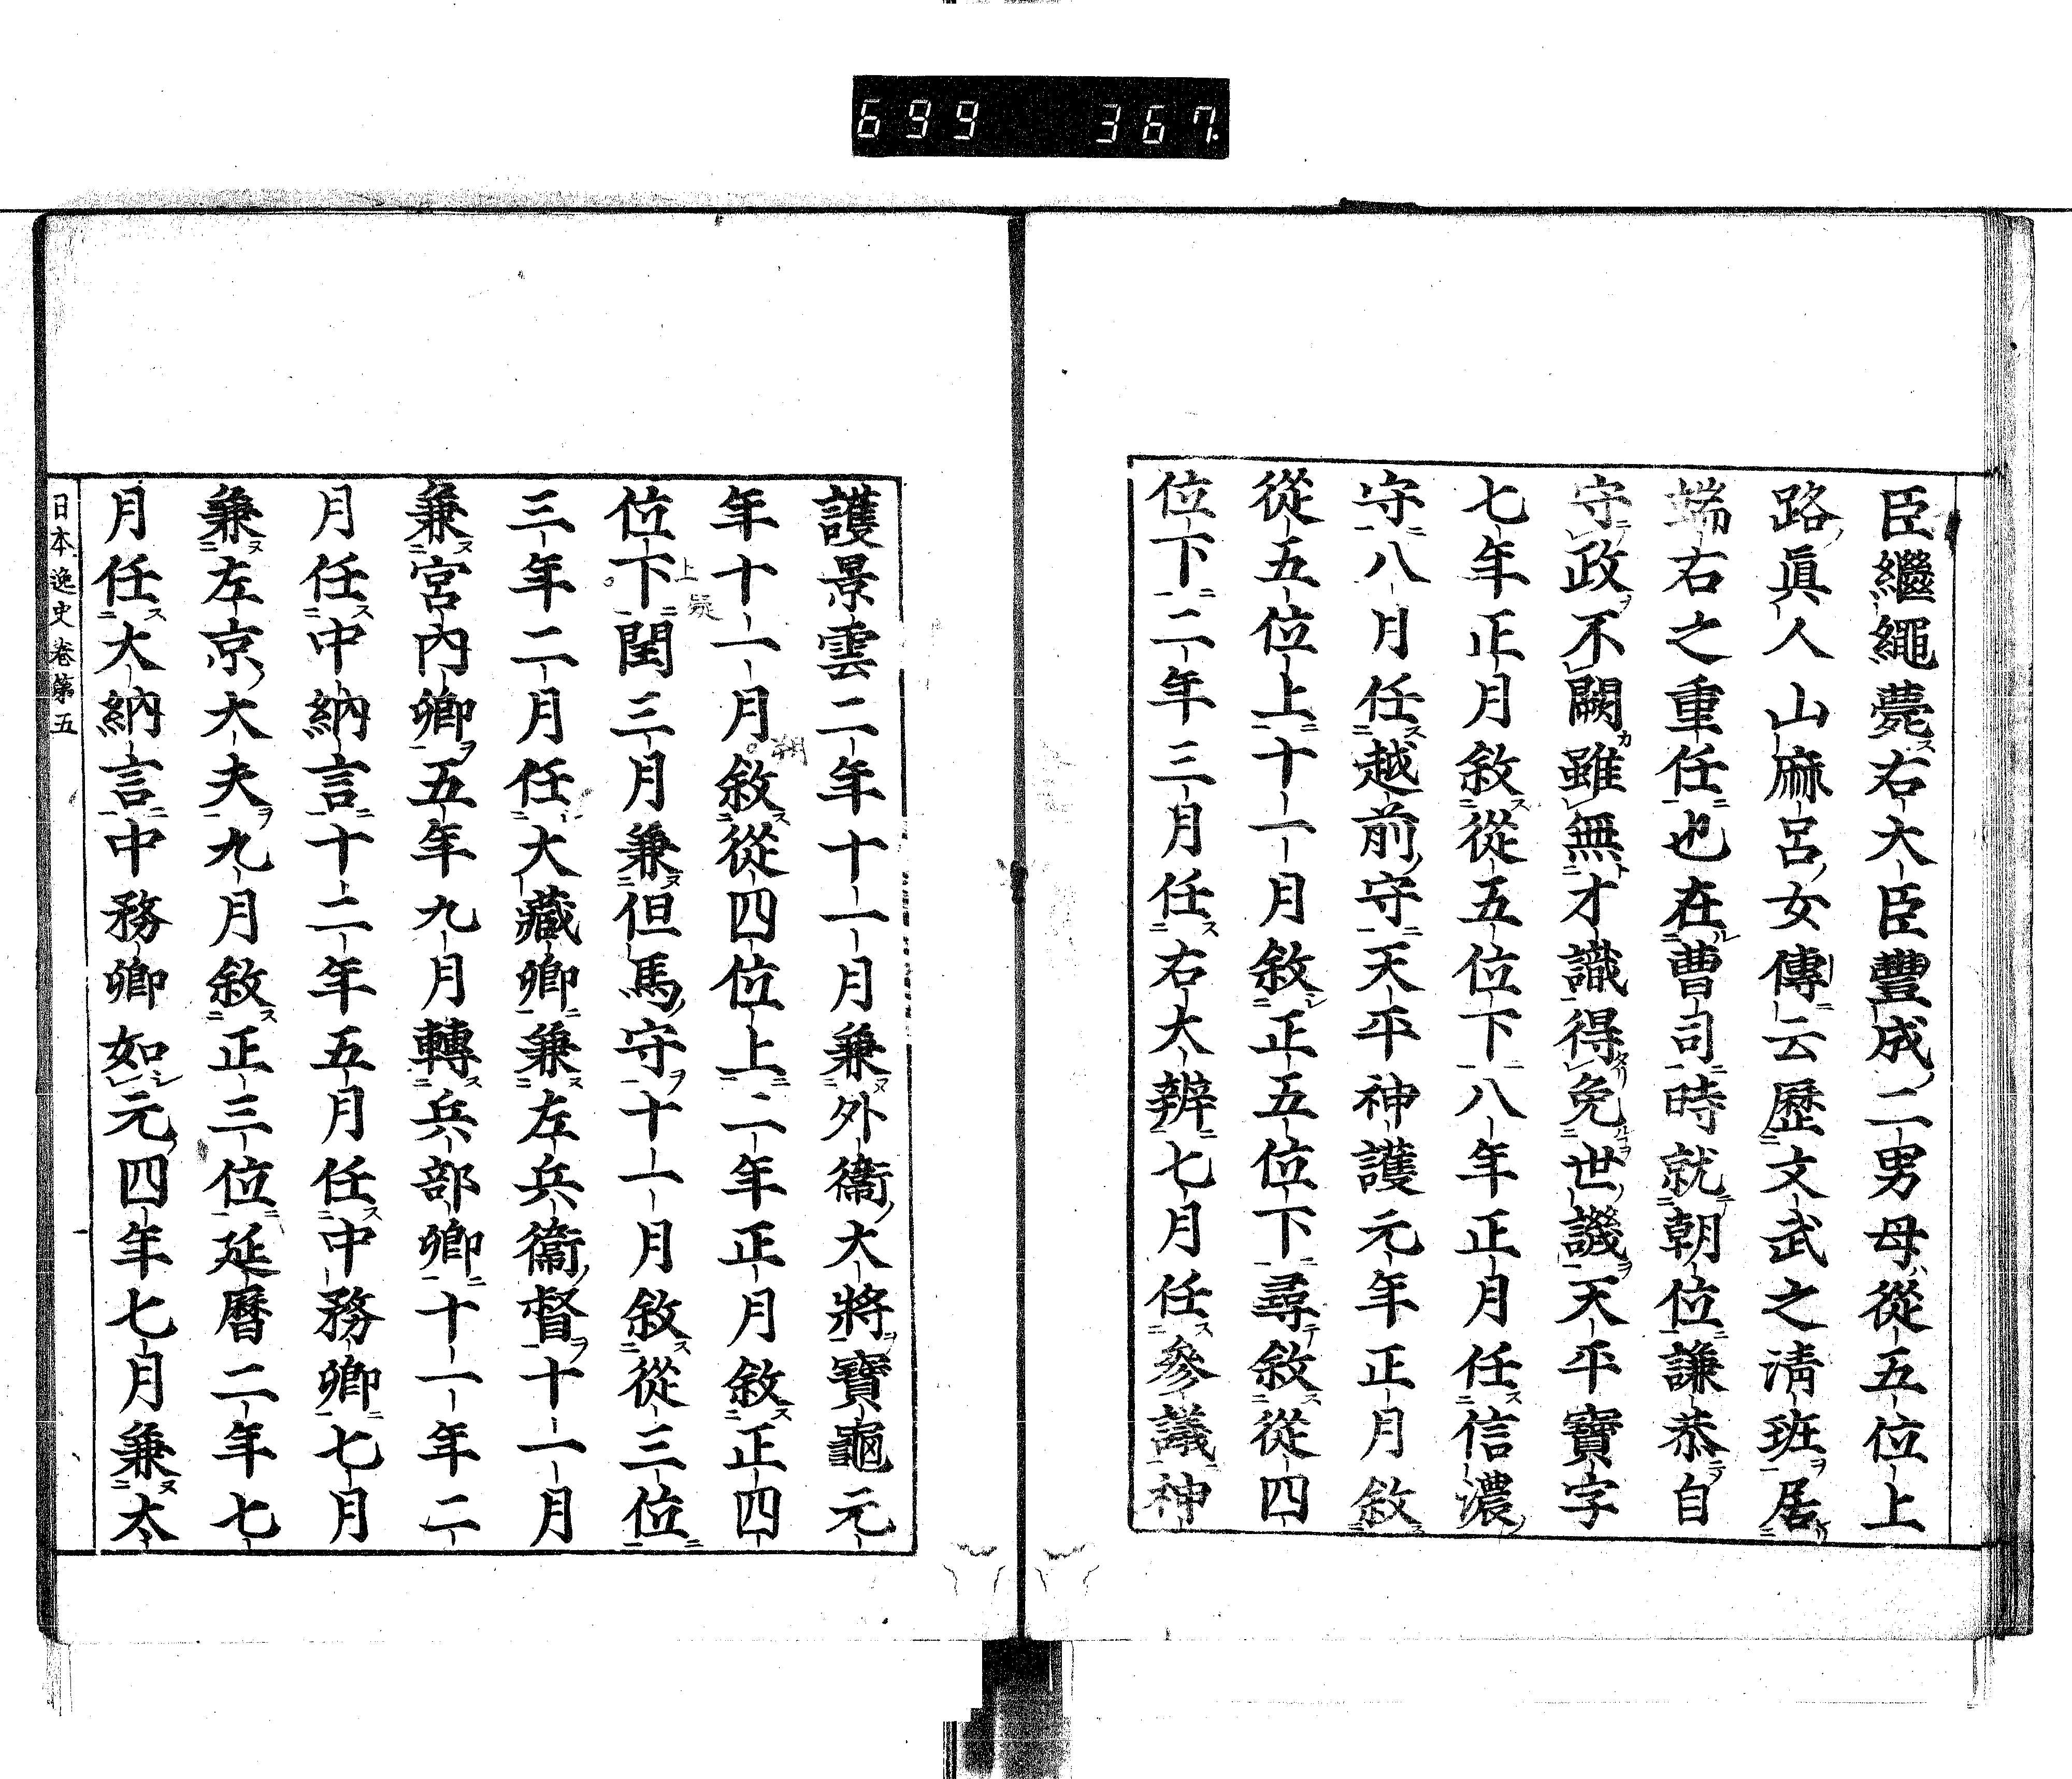 699 367.
臣繼繩薨右大臣豐成二男母從五位上
路眞人山麻呂女傳云歷文武之淸班居
端右之重任也在曹司時就朝位謙恭自
守政不闕雖無才識得免世譏天平寶字
七年正月敘從五位下八年正月任信濃
守八月任越前守天平神護元年正月敘
從五位上十一月敘正五位下尋敘從四
位下二年三月任右大辨七月任參議神
護景雲二年十一月兼外衞大將寶龜元
年十一月敘從四位上二年正月敘正四
朔
位下閏三月兼但馬守十一月敘從三位
上疑
三年二月任大藏卿兼左兵衞督十一月
兼宮內卿五年九月轉兵部卿十一年二
月任中納言十二年五月任中務卿七月
兼左京大夫九月敘正三位延曆二年七
月任大納言中務卿如元四年七月兼太
日本逸史卷第五